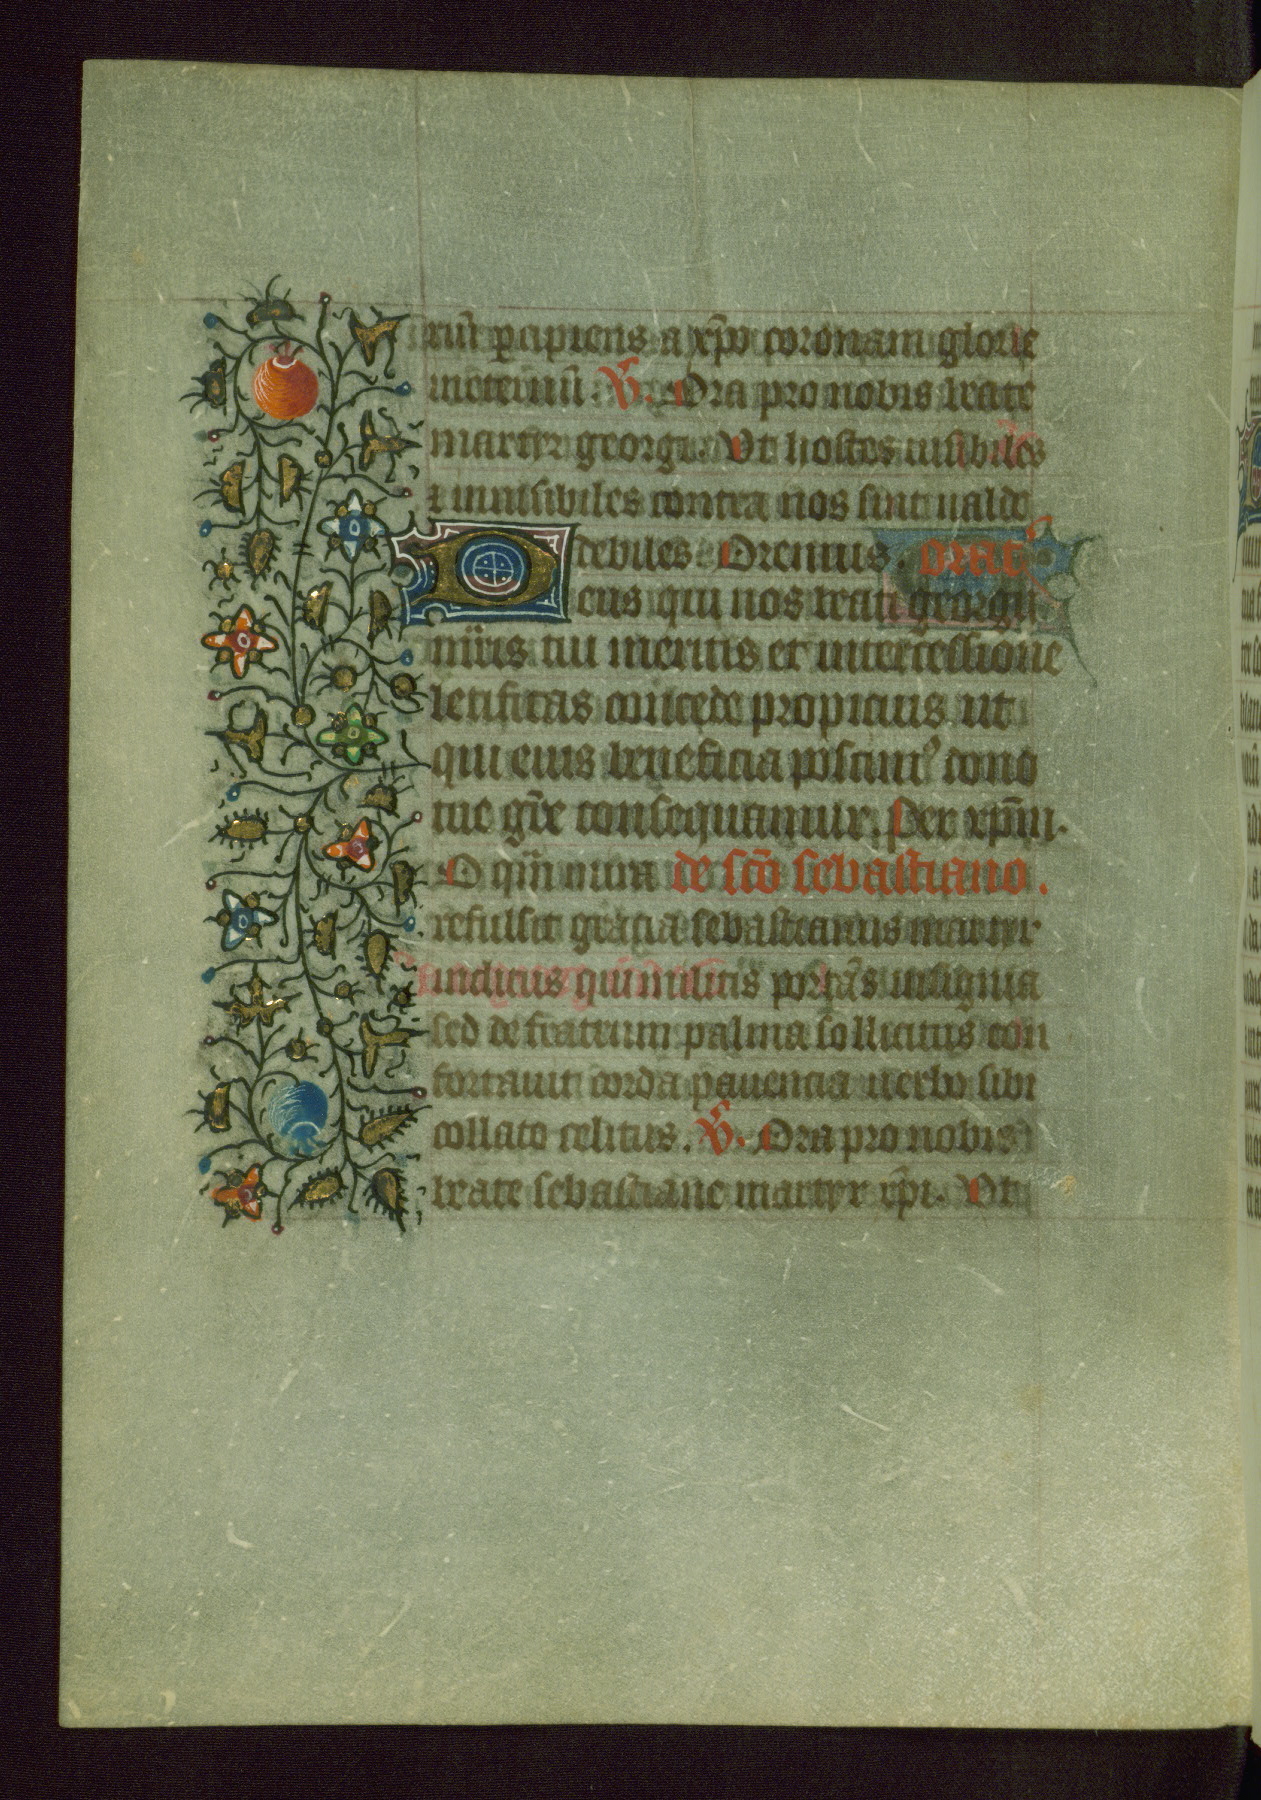 riū ꝑcipiens a xp̄o coronam glorie
meternū. V̄. Ora pro nobis beate
martyr georgi. Vt hostes uisibiles
⁊ inuisibiles contra nos sint ualde
debiles. Oremus. orat'
Deus qui nos beati georgii
mr̄is tui meritis et intercessione
letificas concede propicius ut
qui eius beneficia poscim᷒ dono
tue gr̄e consequamur. Per xp̄m.
O qm̄ mira de sc̄o sebastiano.
refulsit gracia sebastianus martyr
inclitus qui militis portās insignia
sed de fratrum palma sollicitus con
fortauit corda pauencia uerbo sibi
collato celitus. V̄. Ora pro nobis
beate sebastiane martyr xp̄i. Vt